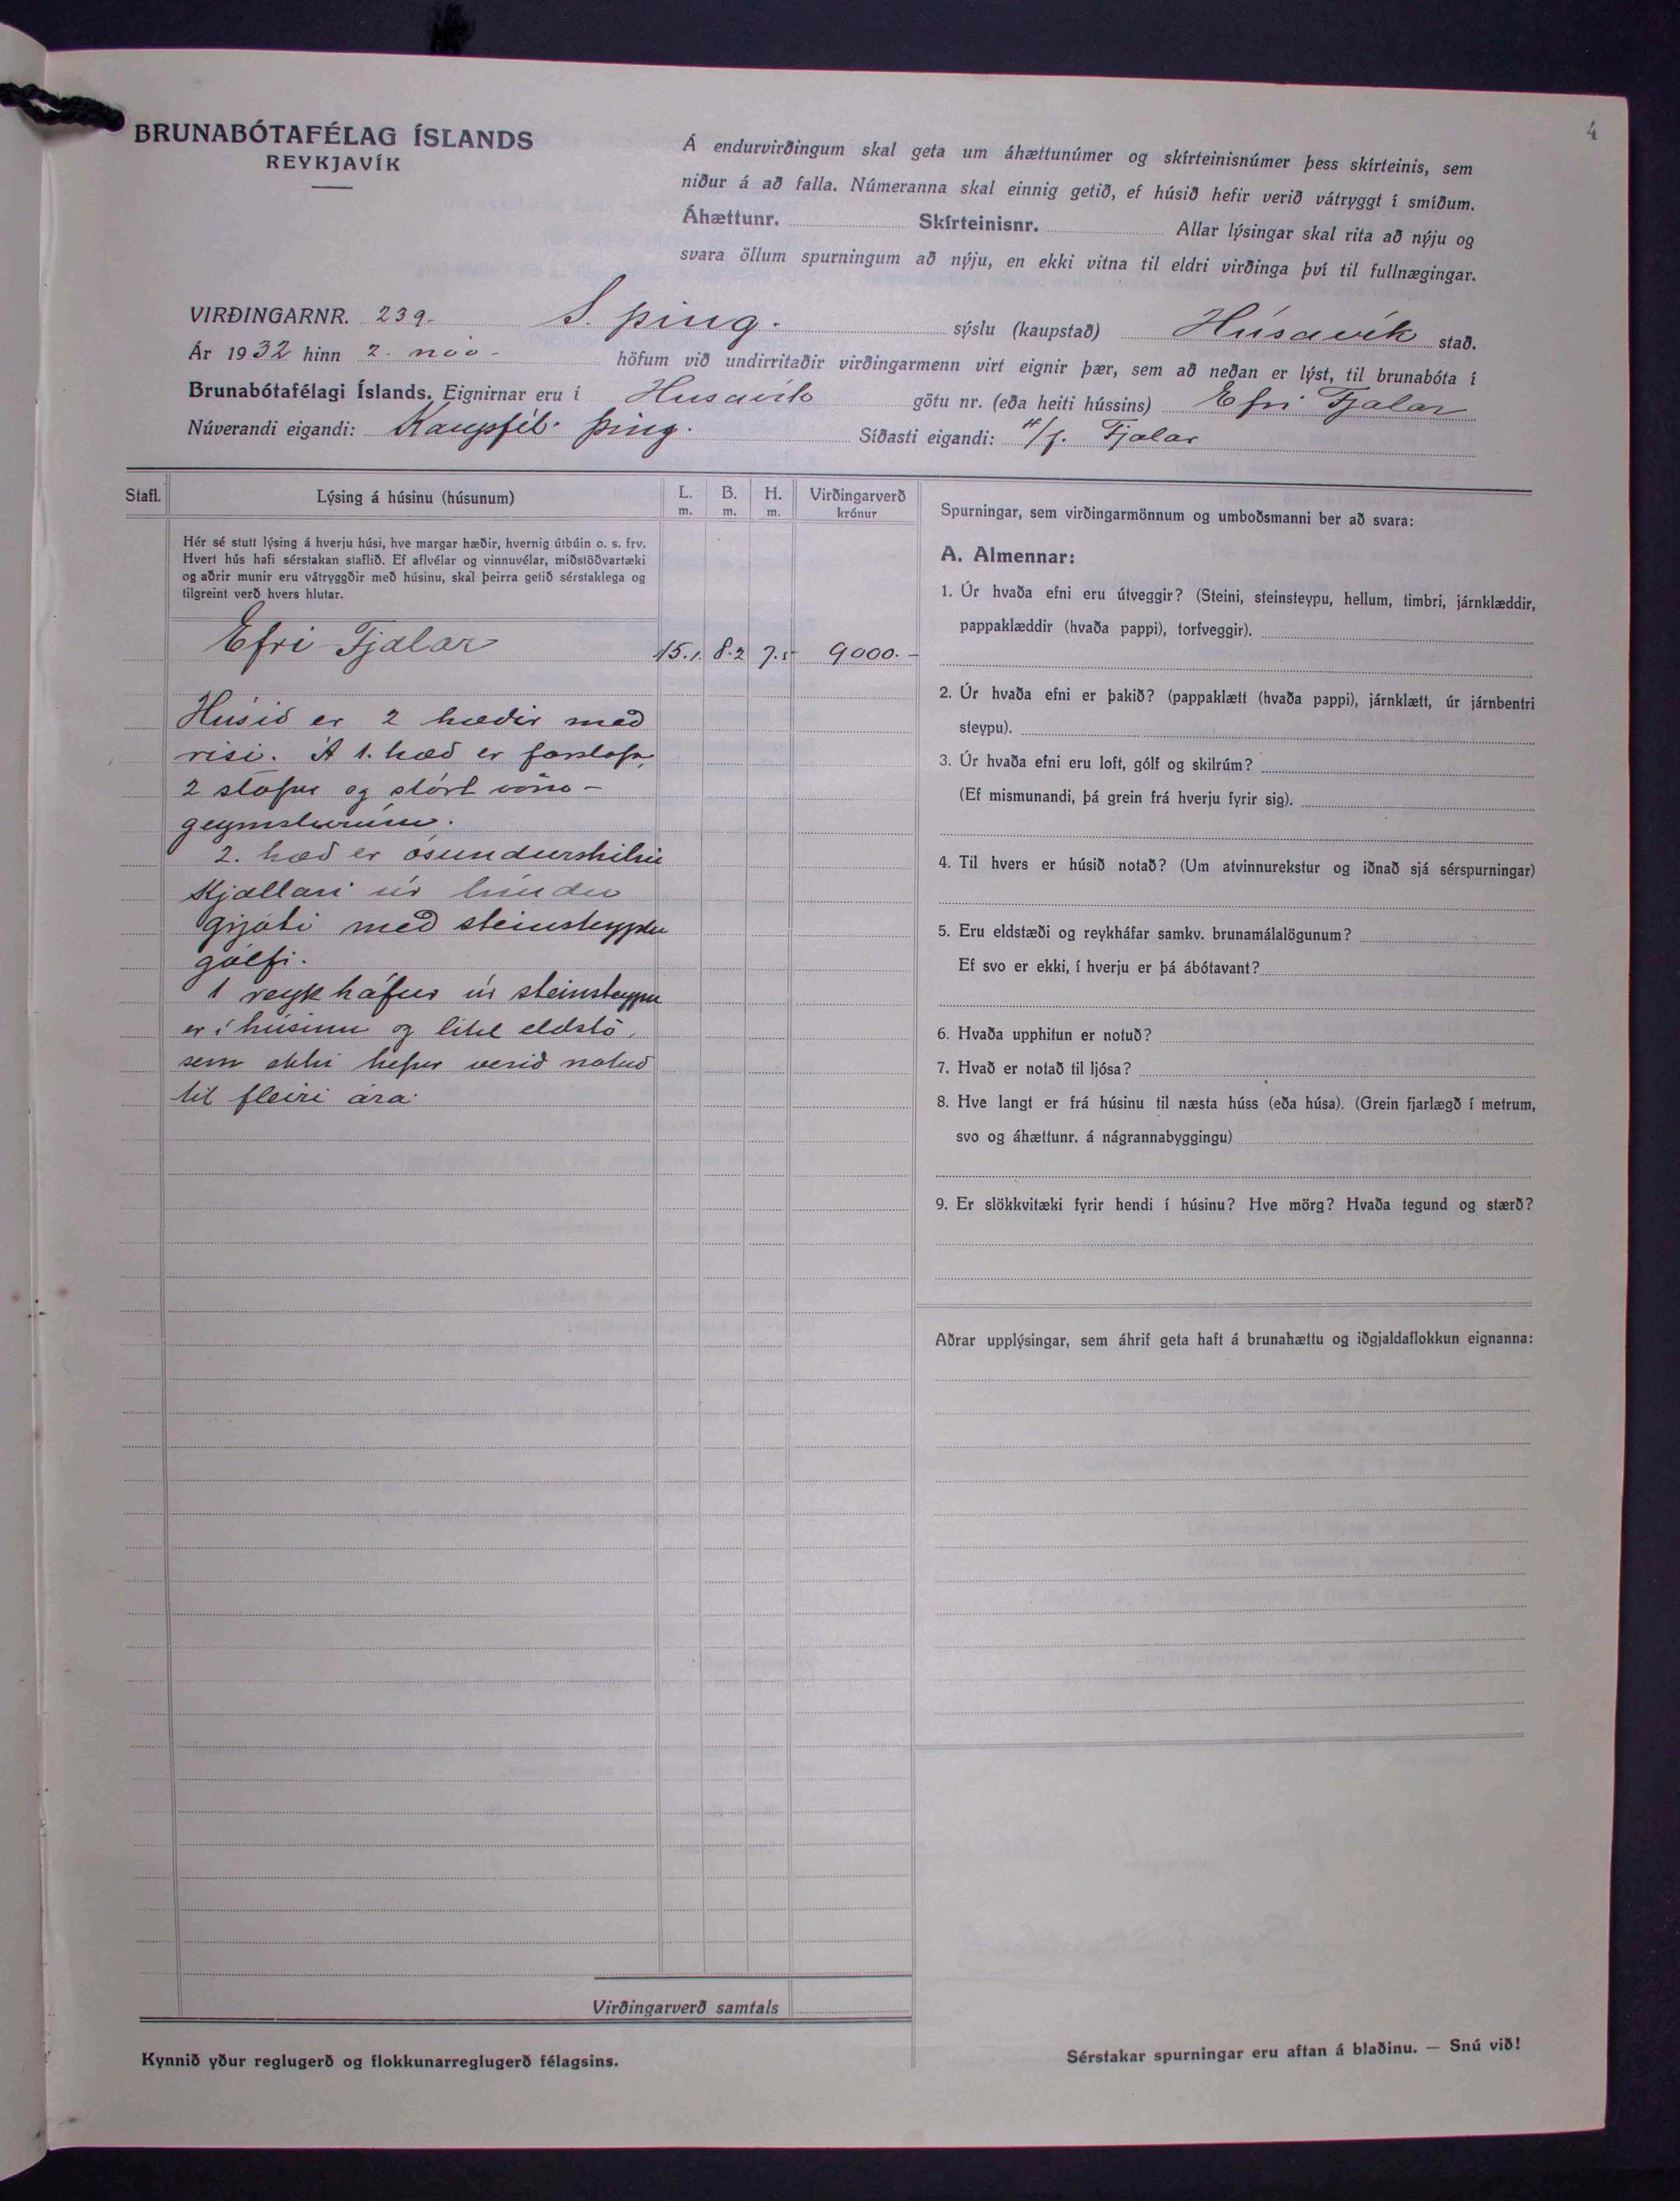 4
BRUNABÓTAFÉLAG ÍSLANDS
REYKJAVÍK
Á endurvirðingum skal geta um áhættunúmer og skírteinisnúmer þess skírteinis, sem
niður á að falla. Númeranna skal einnig getið, ef húsið hefir verið vátryggt í smíðum.
Áhættunr. Skírteinisnr. Allar lýsingar skal rita að nýju og
svara öllum spurningum að nýju, en ekki vitna til eldri virðinga því til fullnægingar.
VIRÐINGARNR. 239. S. þing. sýslu (kaupstað) Húsavík stað.
Ár 1932 hinn 2. nóv. höfum við undirritaðir virðingarmenn virt eignir þær, sem að neðan er lýst, til brunabóta í
Brunabótafélagi Íslands. Eignirnar eru í Húsavík götu nr. (eða heiti hússins) Efri Fjalar
Núverandi eigandi: Kaupfél. Þing. Síðasti eigandi: H/f. Fjalar
Stafl. Lýsing á húsinu (húsunum) L. m. B. m. H. m. Virðingarverð krónur
Hér sé stutt lýsing á hverju húsi, hve margar hæðir, hvernig útbúin o. s. frv.
Hvert hús hafi sérstakan staflið. Ef aflvélar og vinnuvélar, miðstöðvartæki
og aðrir munir eru vátryggðir með húsinu, skal þeirra getið sérstaklega og
tilgreint verð hvers hlutar.
Efri Fjalar 15.1. 8.2 7.5 9000.-
Húsið er 2 hæðir með
risi. Á 1. hæð er forstofa,
2 stofur og stórt vöru-
geymslurúm.
2. hæð er ósundurskilin
Kjallari úr límdu
grjóti með steinsteyptu
gólfi.
1 reykháfur úr steinsteypu
er í húsinu og lítil eldstó,
sem ekki hefur verið notuð
til fleiri ára.
Virðingarverð samtals
Kynnið yður reglugerð og flokkunarreglugerð félagsins.
Spurningar, sem virðingarmönnum og umboðsmanni ber að svara:
A. Almennar:
1. Úr hvaða efni eru útveggir? (Steini, steinsteypu, hellum, timbri, járnklæddir,
pappaklæddir (hvaða pappi), torfveggir).
2. Úr hvaða efni er þakið? (pappaklætt (hvaða pappi), járnklætt, úr járnbentri
steypu).
3. Úr hvaða efni eru loft, gólf og skilrúm?
(Ef mismunandi, þá grein frá hverju fyrir sig).
4. Til hvers er húsið notað? (Um atvinnurekstur og iðnað sjá sérspurningar)
5. Eru eldstæði og reykháfar samkv. brunamálalögunum?
Ef svo er ekki, í hverju er þá ábótavant?
6. Hvaða upphitun er notuð?
7. Hvað er notað til ljósa?
8. Hve langt er frá húsinu til næsta húss (eða húsa). (Grein fjarlægð í metrum,
svo og áhættunr. á nágrannabyggingu)
9. Er slökkvitæki fyrir hendi í húsinu? Hve mörg? Hvaða tegund og stærð?
Aðrar upplýsingar, sem áhrif geta haft á brunahættu og iðgjaldaflokkun eignanna:
Sérstakar spurningar eru aftan á blaðinu. — Snú við!